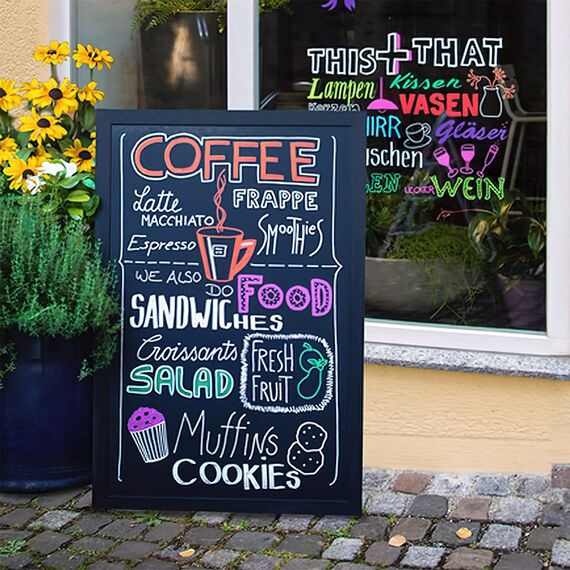 THIS + THAT
Lampen Kissen
Kerzen VASEN
Gläser
LECKER WEIN
COFFEE
Latte
MACCHIATO
FRAPPE
Espresso
SMOOTHIES
WE ALSO
DO FOOD
SANDWICHES
Croissants
SALAD
FRESH
FRUIT
Muffins
COOKIES